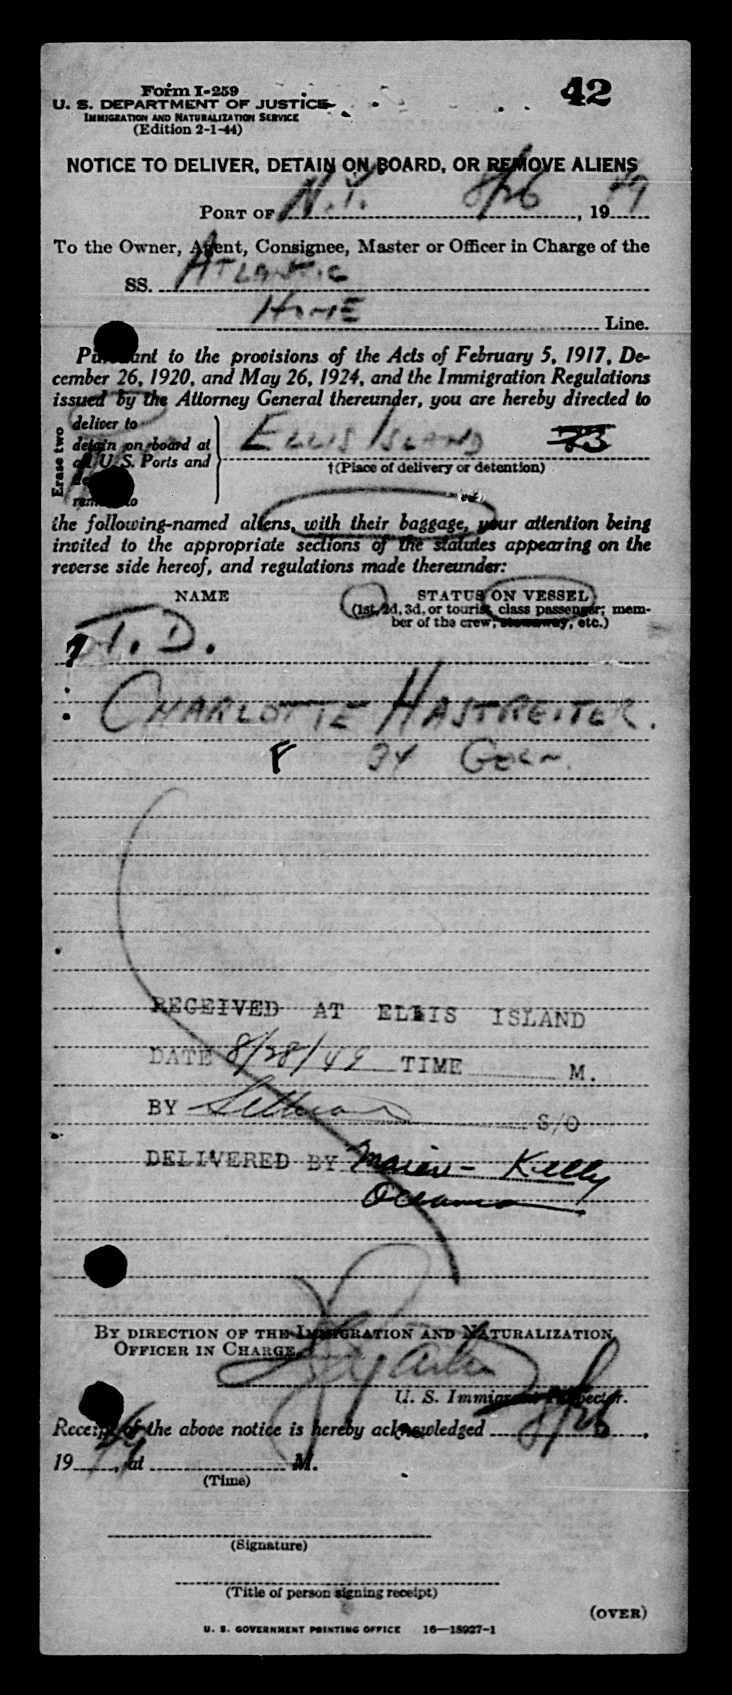 Form I-259
42
U. S. DEPARTMENT OF JUSTICE
IMMIGRATION AND NATURALIZATION SERVICE
(Edition 2-1-44)
NOTICE TO DELIVER, DETAIN ON BOARD, OR REMOVE ALIENS
PORT OF N.Y. 8/26, 1949
To the Owner, Agent, Consignee, Master or Officer in Charge of the
SS. ATLANTIC
HOME Line.
Pursuant to the provisions of the Acts of February 5, 1917, De-
cember 26, 1920, and May 26, 1924, and the Immigration Regulations
issued by the Attorney General thereunder, you are hereby directed to
Erase two
deliver to
detain on board at
all U. S. Ports and
remove to
ELLIS ISLAND 73
†(Place of delivery or detention)
the following-named aliens, with their baggage, your attention being
invited to the appropriate sections of the statutes appearing on the
reverse side hereof, and regulations made thereunder:
NAME
STATUS ON VESSEL
(1st, 2d, 3d, or tourist class passenger; mem-
ber of the crew, stowaway, etc.)
T. D.
CHARLOTTE HASTREITER.
F 34 GERM.
RECEIVED AT ELLIS ISLAND
DATE 8/28/49 TIME M.
BY S/O
DELIVERED BY Kelly
By direction of the Immigration and Naturalization
Officer in Charge
U. S. Immigrant Inspector.
Receipt of the above notice is hereby acknowledged 8/26,
1949, at M.
(Time)
(Signature)
(Title of person signing receipt)
(OVER)
U. S. GOVERNMENT PRINTING OFFICE 16—18927-1